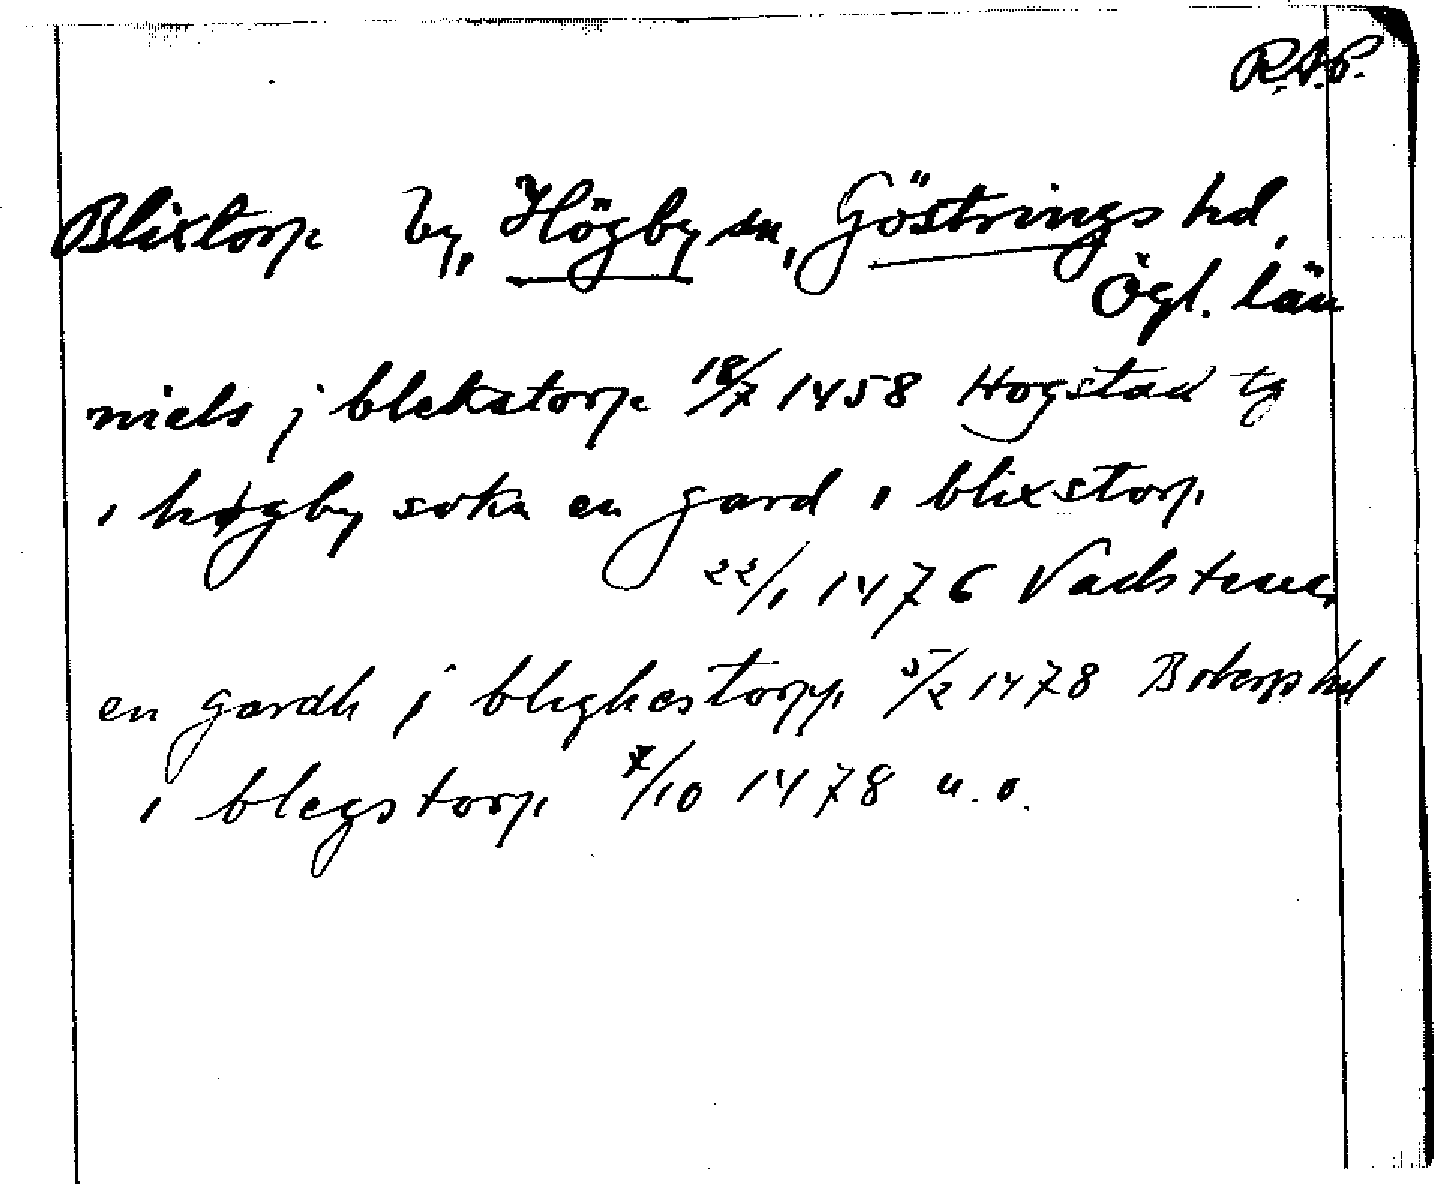 R.A.P.
Blixtorp by, Högby sn, Göstrings hd,
Ögl. län
niels j blekstorp 18/7 1458 Hogstad tg
i høgby sokn en gard i blixstorp
22/1 1476 Vadstena
en gardh j bleghestorpp 5/2 1478 hd
i blegstorp 7/10 1478 u.o.